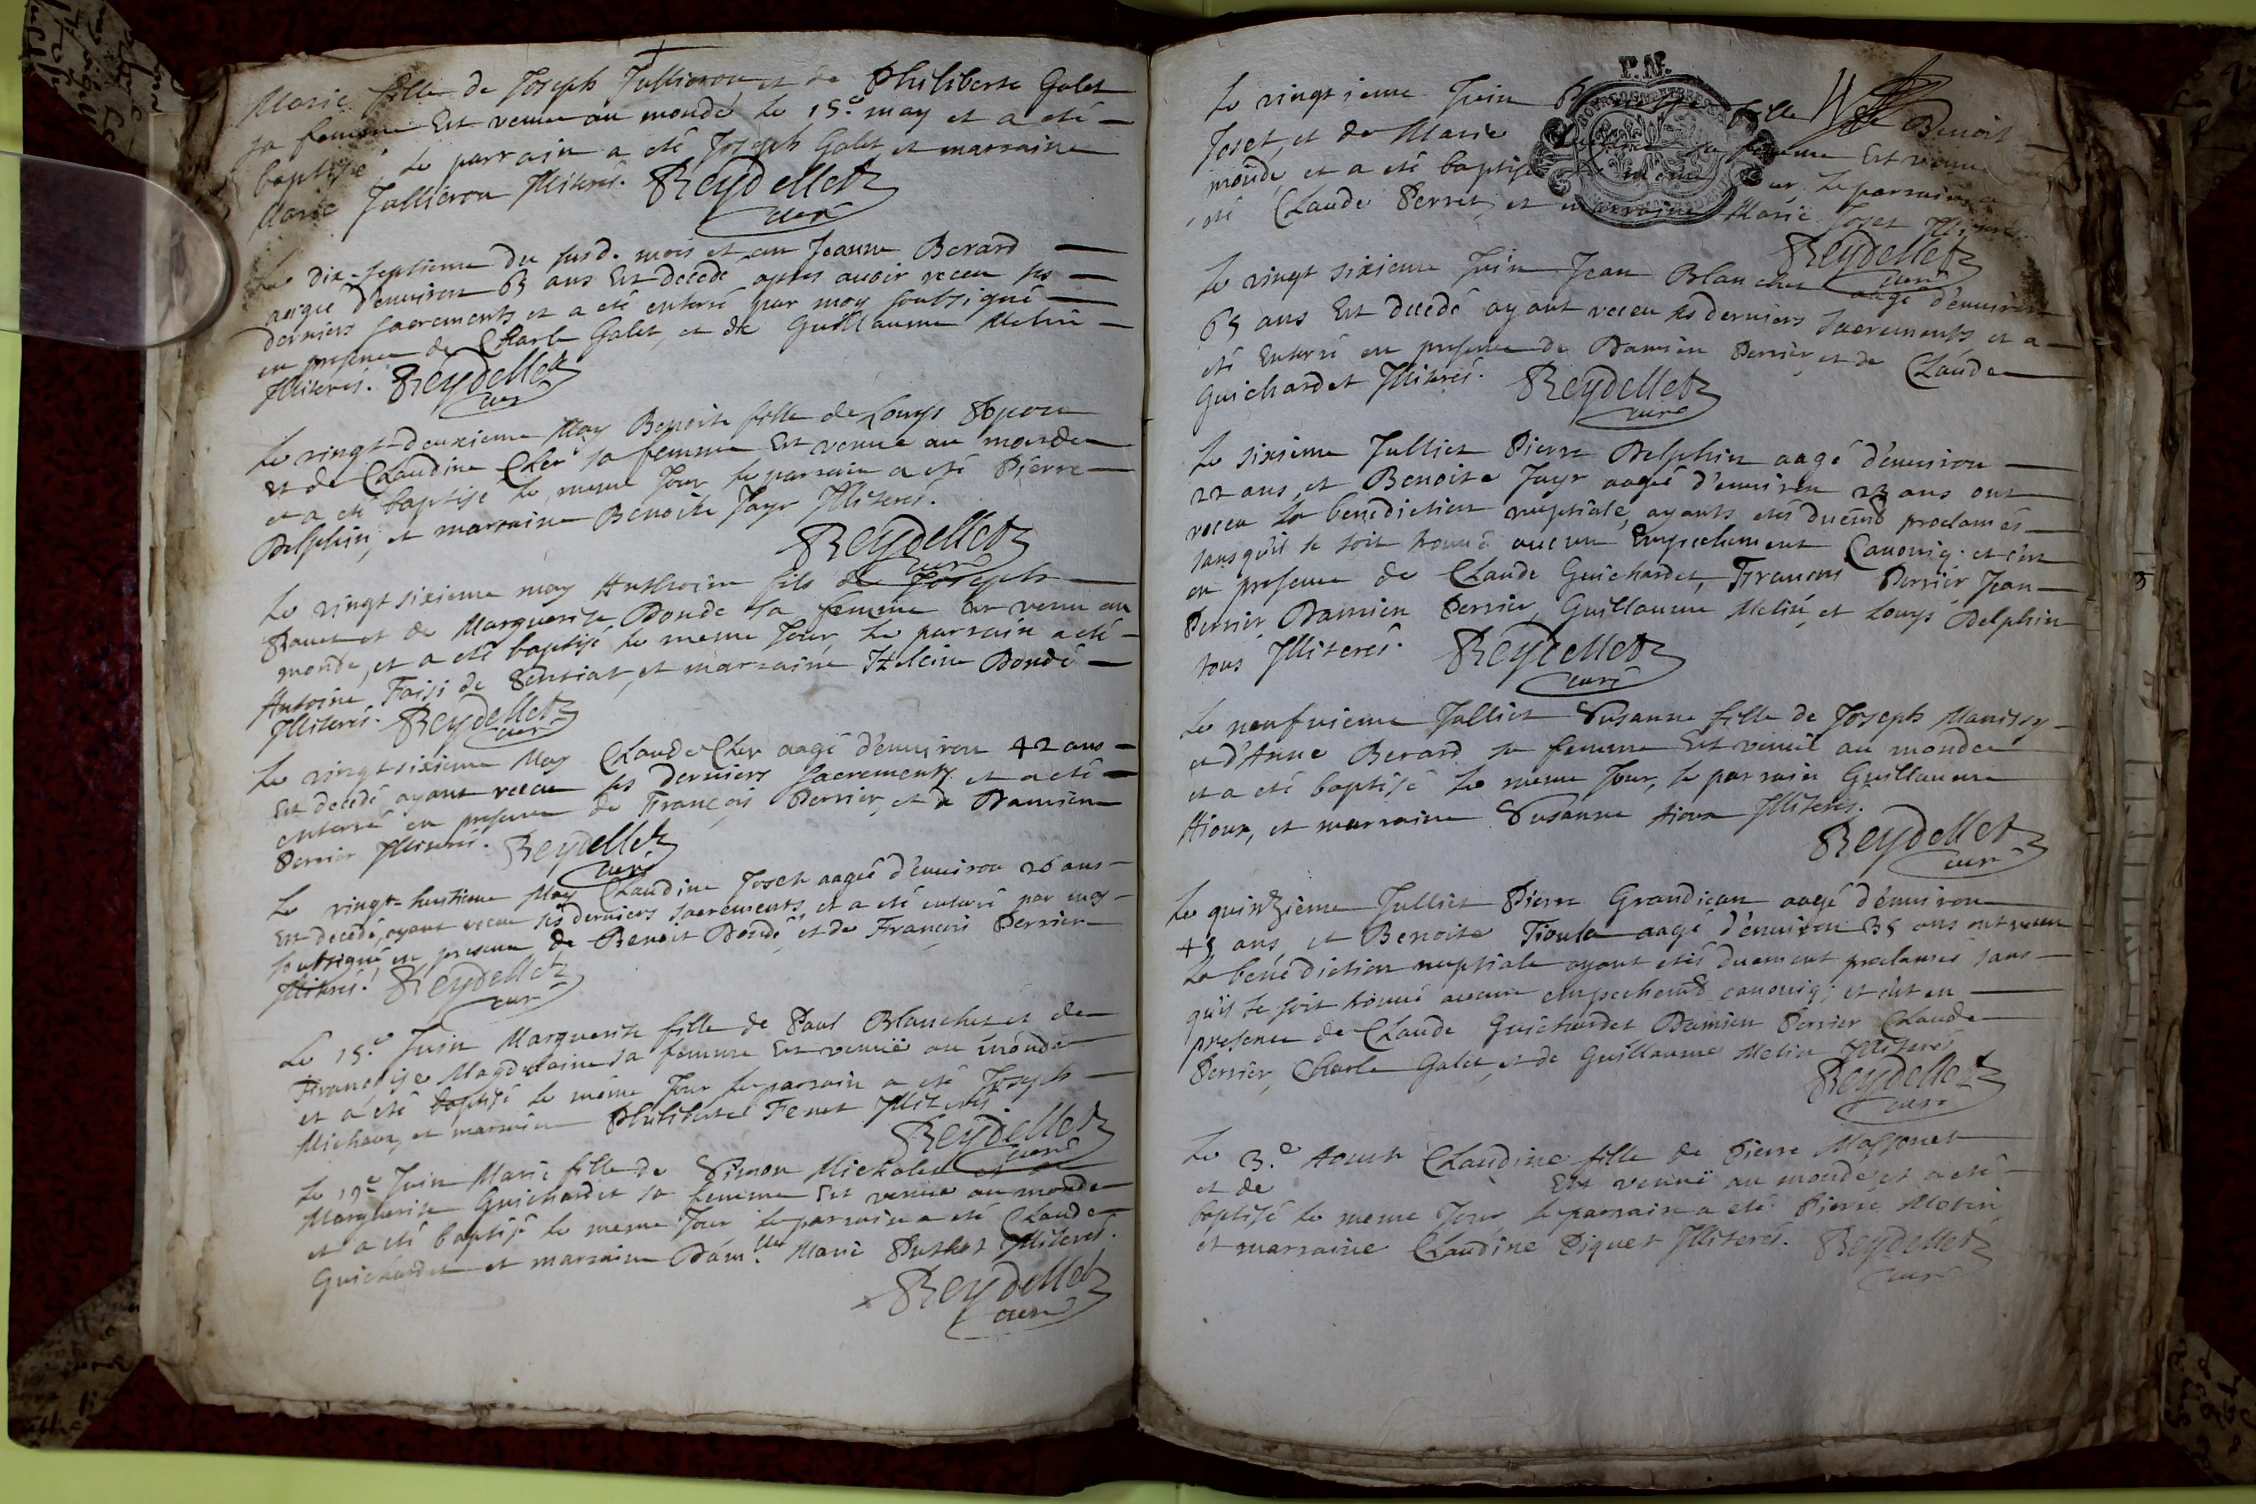 Marie fille de Joseph Jullieron et de Philiberte Galet
sa femme Est venue au monde le 15.e may et a eté
baptisé, le parrain a eté Joseph Galet et marraine
Marie Jullieron Illiterés. Reydellet
curé
Le dix-septieme du susd. mois et an Jeanne Berard
aagée d'environ 65 ans Est decedé apres avoir receu ses
derniers sacrements et a eté enterré par moy soubsigné
en presence de Charle Galet, et de Guillaume Melin
Illiterés. Reydellet
curé
Le vingt-deuxieme May Benoite fille de Louys
et de Claudine Cler sa femme Est venue au monde
et a eté baptisé le meme Jour le parrain a eté Pierre
Delphin, et marraine Benoite Jayr Illiterés.
Reydellet
curé
Le vingt sixieme may Anthoine fils de Joseph
et de Marguerite Dondé sa femme Est venu au
monde, et a eté baptisé le meme Jour, le parrain a eté
Antoine de et marraine Heleine Dondé
Illiterés. Reydellet
curé
Le vingt sixieme May Claude Cler aagé d'environ 42 ans
Est decedé ayant receu ses derniers sacrements et a eté
enterré en presence de François Perrier, et de Damien
Perrier Illiterés. Reydellet
curé
Le vingt-huitieme May Claudine Joset aagée d'environ 26 ans
Est decedé, ayant receu ses derniers sacrements et a eté enterré par moy
soubsigné en presence de Benoit Dondé et de François Perrier
Illiterés. Reydellet
curé
Le 15.e Juin Marguerite fille de Paul Blanchet et de
Françoise Magdelaine sa femme Est venuë au monde
et a eté baptisé le meme Jour le parrain a eté Joseph
Michaux, et marraine Philiberte Fenet Illiterés
Reydellet
curé
Le 19.e Juin Marie fille de Simon Michalet et de
Marguerite Guichardet sa femme Est venue au monde
et a eté baptisé le meme Jour le parrain a eté Claude
Guichardet et marraine Dam.lle Marie Illiterés.
Reydellet
curé
P. N.
Le vingtieme Juin fille de Benoit
Joset, et de Marie sa femme Est venue au
monde, et a eté baptisé le meme Jour le parrain a
eté Claude Perret, et marraine Marie Joset Illiterés
Reydellet
curé
Le vingt sixieme Juin Jean Blanchet aagé d'environ
65 ans Est decedé ayant receu ses derniers sacrements et a
eté Enterré en presence de Damien Perrier, et de Claude
Guichardet Illiterés. Reydellet
curé
Le sixieme Jullier Pierre Delphin aagé d'environ
22 ans, et Benoite Jayr aagée d'environ 23 ans ont
receu la benediction nuptiale, ayants etés duëmt proclamés
sans qu'il se soit trouvé aucun Empechement Canoniq. et c'est
en presence de Claude Guichardet, François Perrier Jean
Perrier Damien Perrier, Guillaume Melin, et Louys Delphin
tous Illiterés. Reydellet
curé
Le neufvieme Jullier Susanne fille de Joseph Manissy
et d'Anne Berard sa femme Est venuë au monde
et a eté baptisé le meme Jour, le parrain Guillaume
Hioux, et marraine Susanne Hioux Illiterés.
Reydellet
curé
Le quinzieme Jullier Pierre Grandjean aagé d'environ
45 ans et Benoite Tioula aagé d'environ 35 ans ont receu
la benediction nuptiale ayant etés duement proclamés sans
qu'il se soit trouvé aucun empechemt canoniq; et c'est en
presence de Claude Guichardet Damien Perrier Claude
Perrier, Charle Galet, et de Guillaume Melin Illiterés
Reydellet
curé
Le 3.e Aoust Claudine fille de Pierre Massonet
et de Est venuë au monde et a eté
baptisé le meme Jour, le parrain a eté Pierre
et marraine Claudine Piquet Illiterés. Reydellet
curé